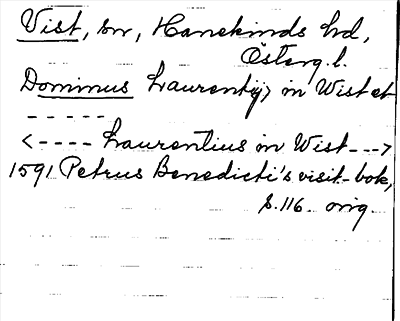 Vist, sn, Hanekinds hd,
Österg. l.
Dominus Laurentij> in Wist et
- - - - -
<- - - - Laurentius in Wist - - ->
1591 Petrus Benedicti's visit.bok,
s. 116. orig.